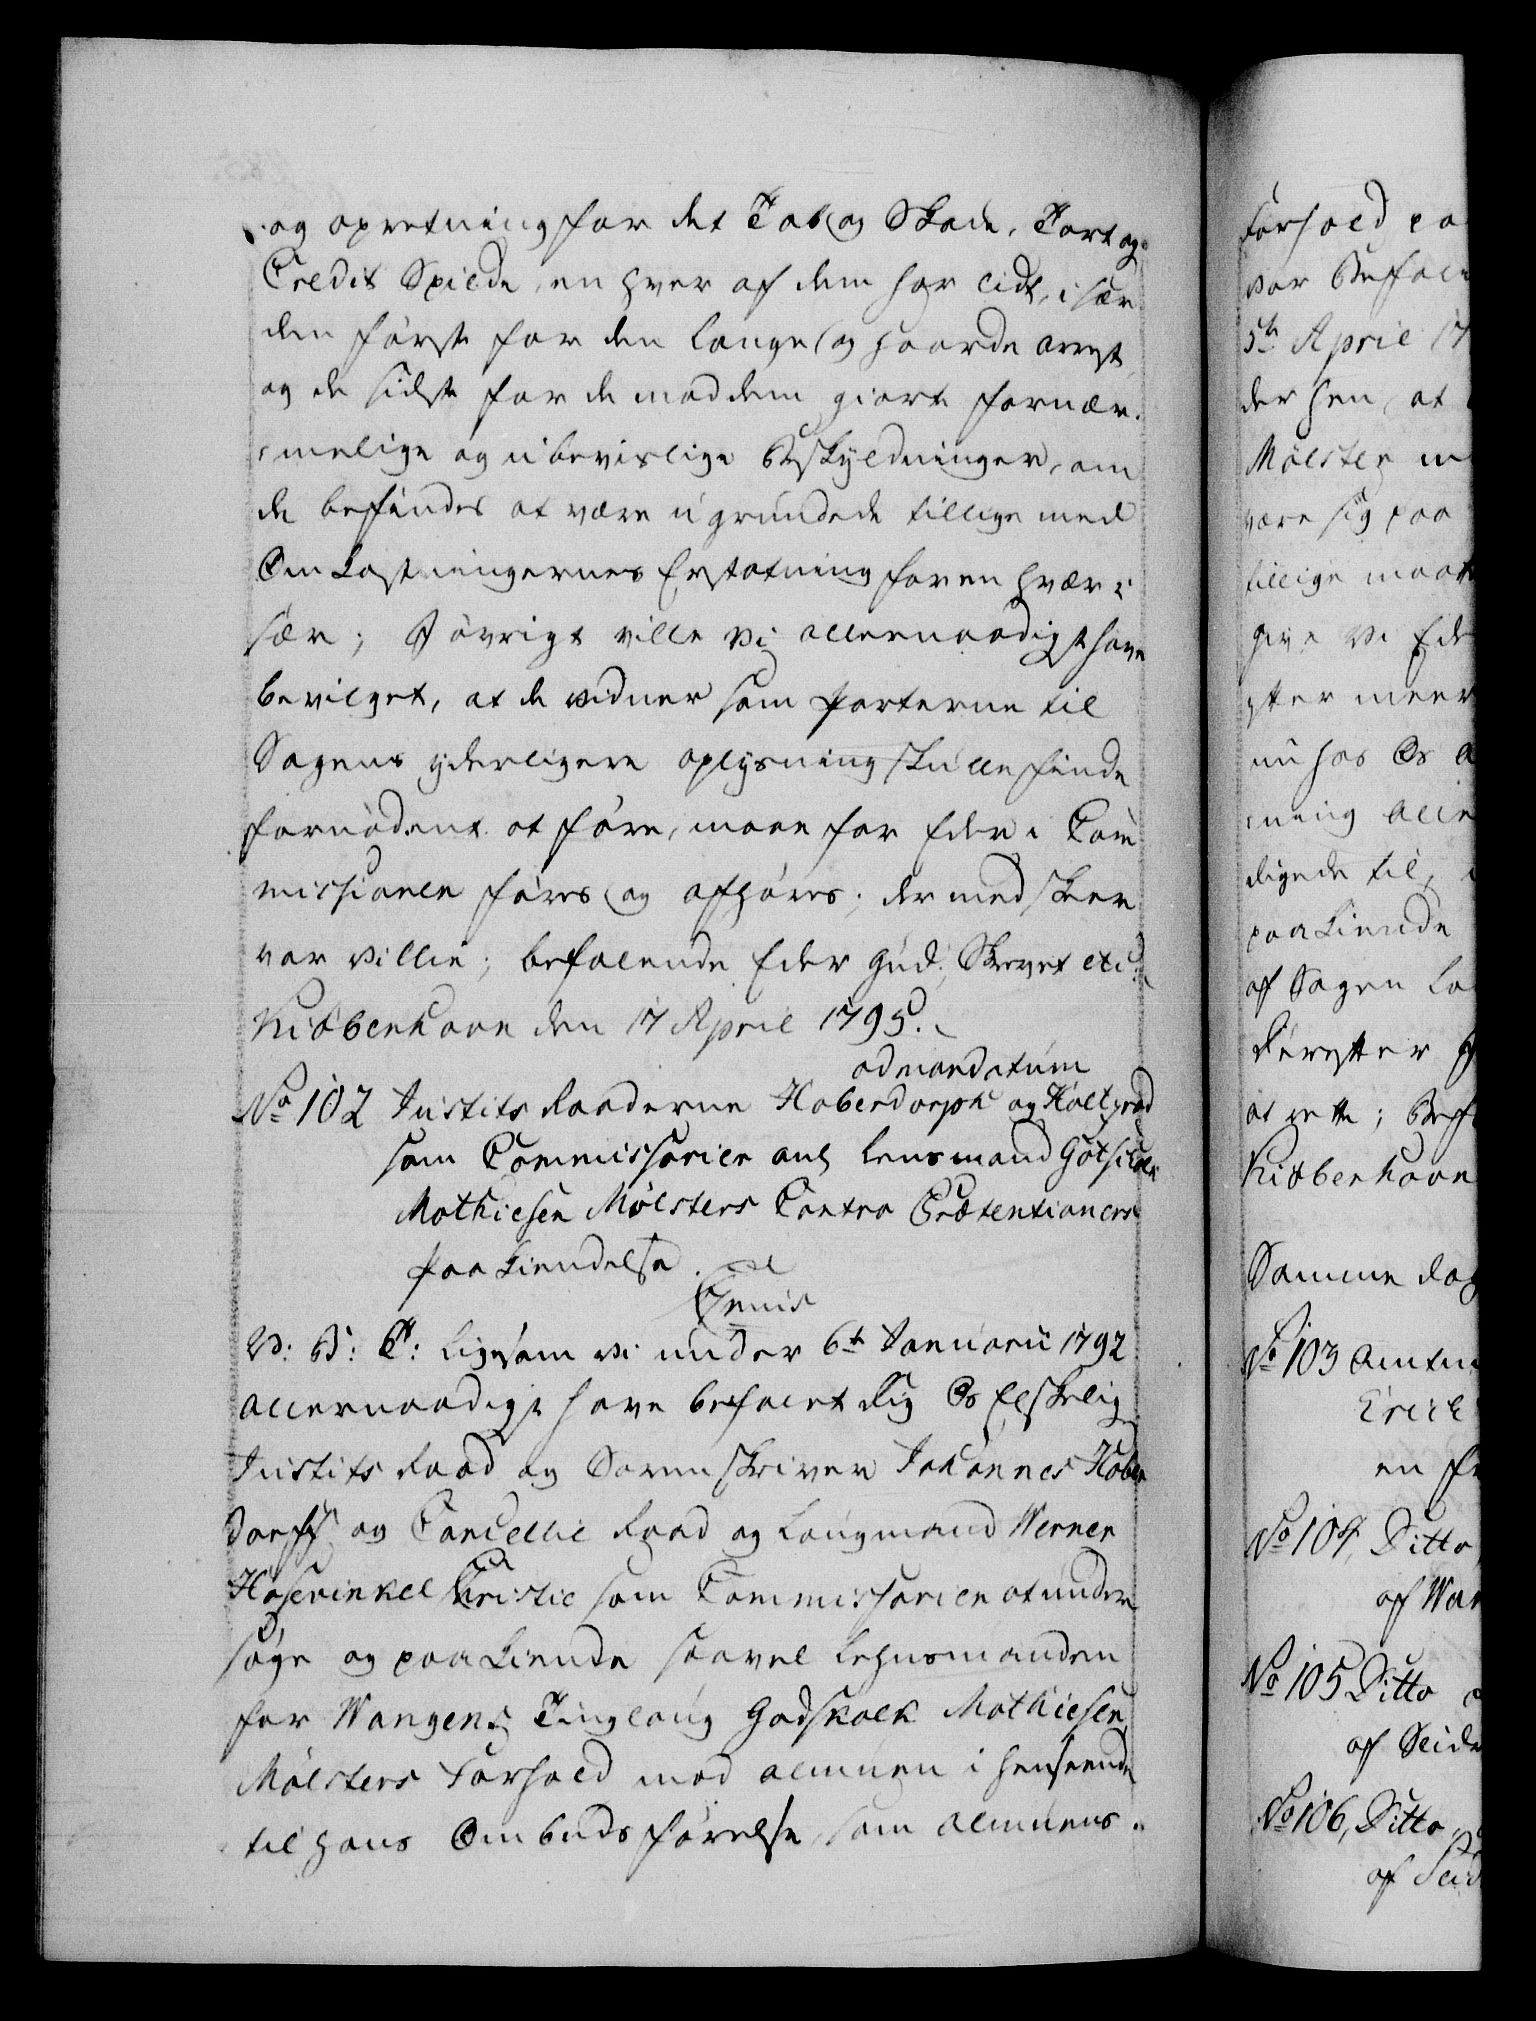 og opretning for det Tab og Skade, Tort og
Credit Spilde, en hver af dem har lidt, i sær
den første for den lange og haarde arrest
og de sidste for de mod dem giorte fornær-
melige og ubevislige Beskyldninger, om
de befindes at være ugrundede tillige med
Omkostningernes Erstatning for en hver i
sær; I øvrigt ville Vi allernaadigst have
bevilget, at de vidner som parterne til
Sagens yderligere oplysning skulle finde
fornødent at føre, maae for Eder i Com
missionen føres og afhøres; der med skeer
vor villie; befalende Eder Gud; Skrevet etc:
Kiøbenhavn den 17 April 1795.
ad mandatum
No 102 Justits Raaderne Haberdorph og Koltzrod
som Commissarier ang Lensmand Gotskalk
Mathiesen Mølsters Contra Prætentioners
paakiendelse.
Genis
V: B: T: Ligesom Vi under 6t Januarii 1792
allernaadigst have befalet dig Os Elskelig
Justits Raad og Sorenskriver Johannes Haber
dorff og Cancellie Raad og Laugmand Werner
Hosevinkel Christie som Commissarier at under
søge og paakiende saavel Lehnsmanden
for Wangens Tinglaug Godskalk Mathiesen
Mølsters Forhold mod almuen i henseende
til hans Ombuds førelse, som almuens
Forhold
vor Befal
5te April 17
der hen, at
Mølster
være sig paa
tillige
give Vi Ed
efter meer
nu hos Os
ning alle
digede til,
paakiende
af Sagen
Derefter
at rette; Bef
Kiøbenhavn
Samme Dag
No 103 Amtm
Erich
en
No 104, Ditto
af Wan
No 105 Ditto
af Seide
No 106, Ditto
af Seid